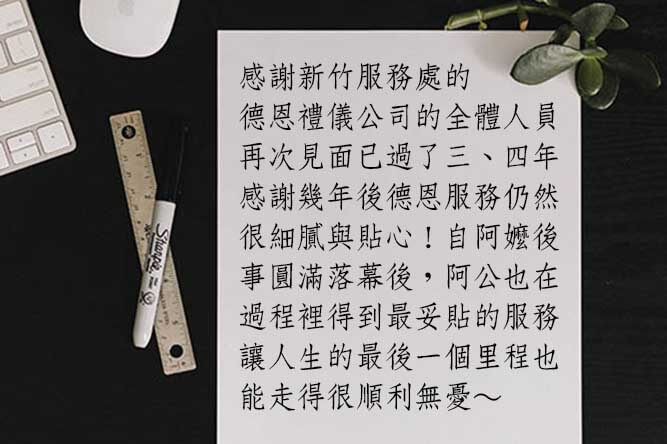 感謝新竹服務處的
德恩禮儀公司的全體人員
再次見面已過了三、四年
感謝幾年後德恩服務仍然
很細膩與貼心！自阿嬤後
事圓滿落幕後，阿公也在
過程裡得到最妥貼的服務
讓人生的最後一個里程也
能走得很順利無憂～
Sharpie